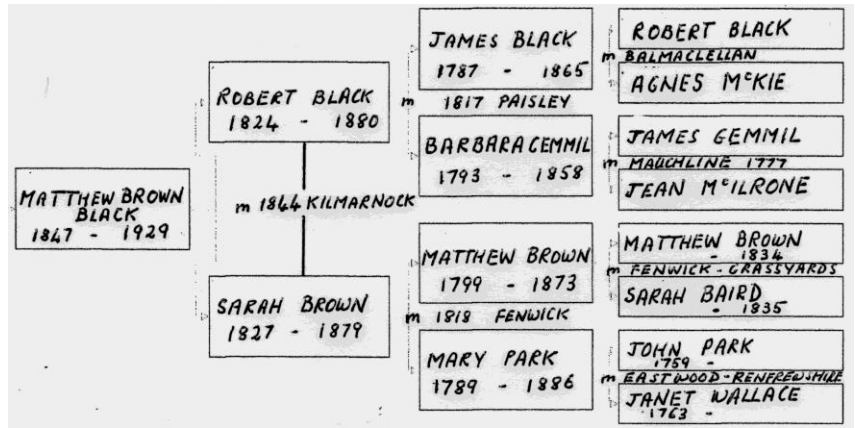 MATTHEW BROWN
BLACK
1847 - 1929
ROBERT BLACK
1824 - 1880
m 1844 KILMARNOCK
SARAH BROWN
1827 - 1879
JAMES BLACK
1787 - 1865
m 1817 PAISLEY
BARBARA GEMMIL
1793 - 1858
MATTHEW BROWN
1799 - 1873
m 1818 FENWICK
MARY PARK
1789 - 1886
ROBERT BLACK
m BALMACLELLAN
AGNES McKIE
JAMES GEMMIL
m MAUCHLINE 1777
JEAN McILRONE
MATTHEW BROWN
- 1834
m FENWICK - GRASSYARDS
SARAH BAIRD
- 1835
JOHN PARK
1759 -
m EASTWOOD - RENFREWSHIRE
JANET WALLACE
1763 -